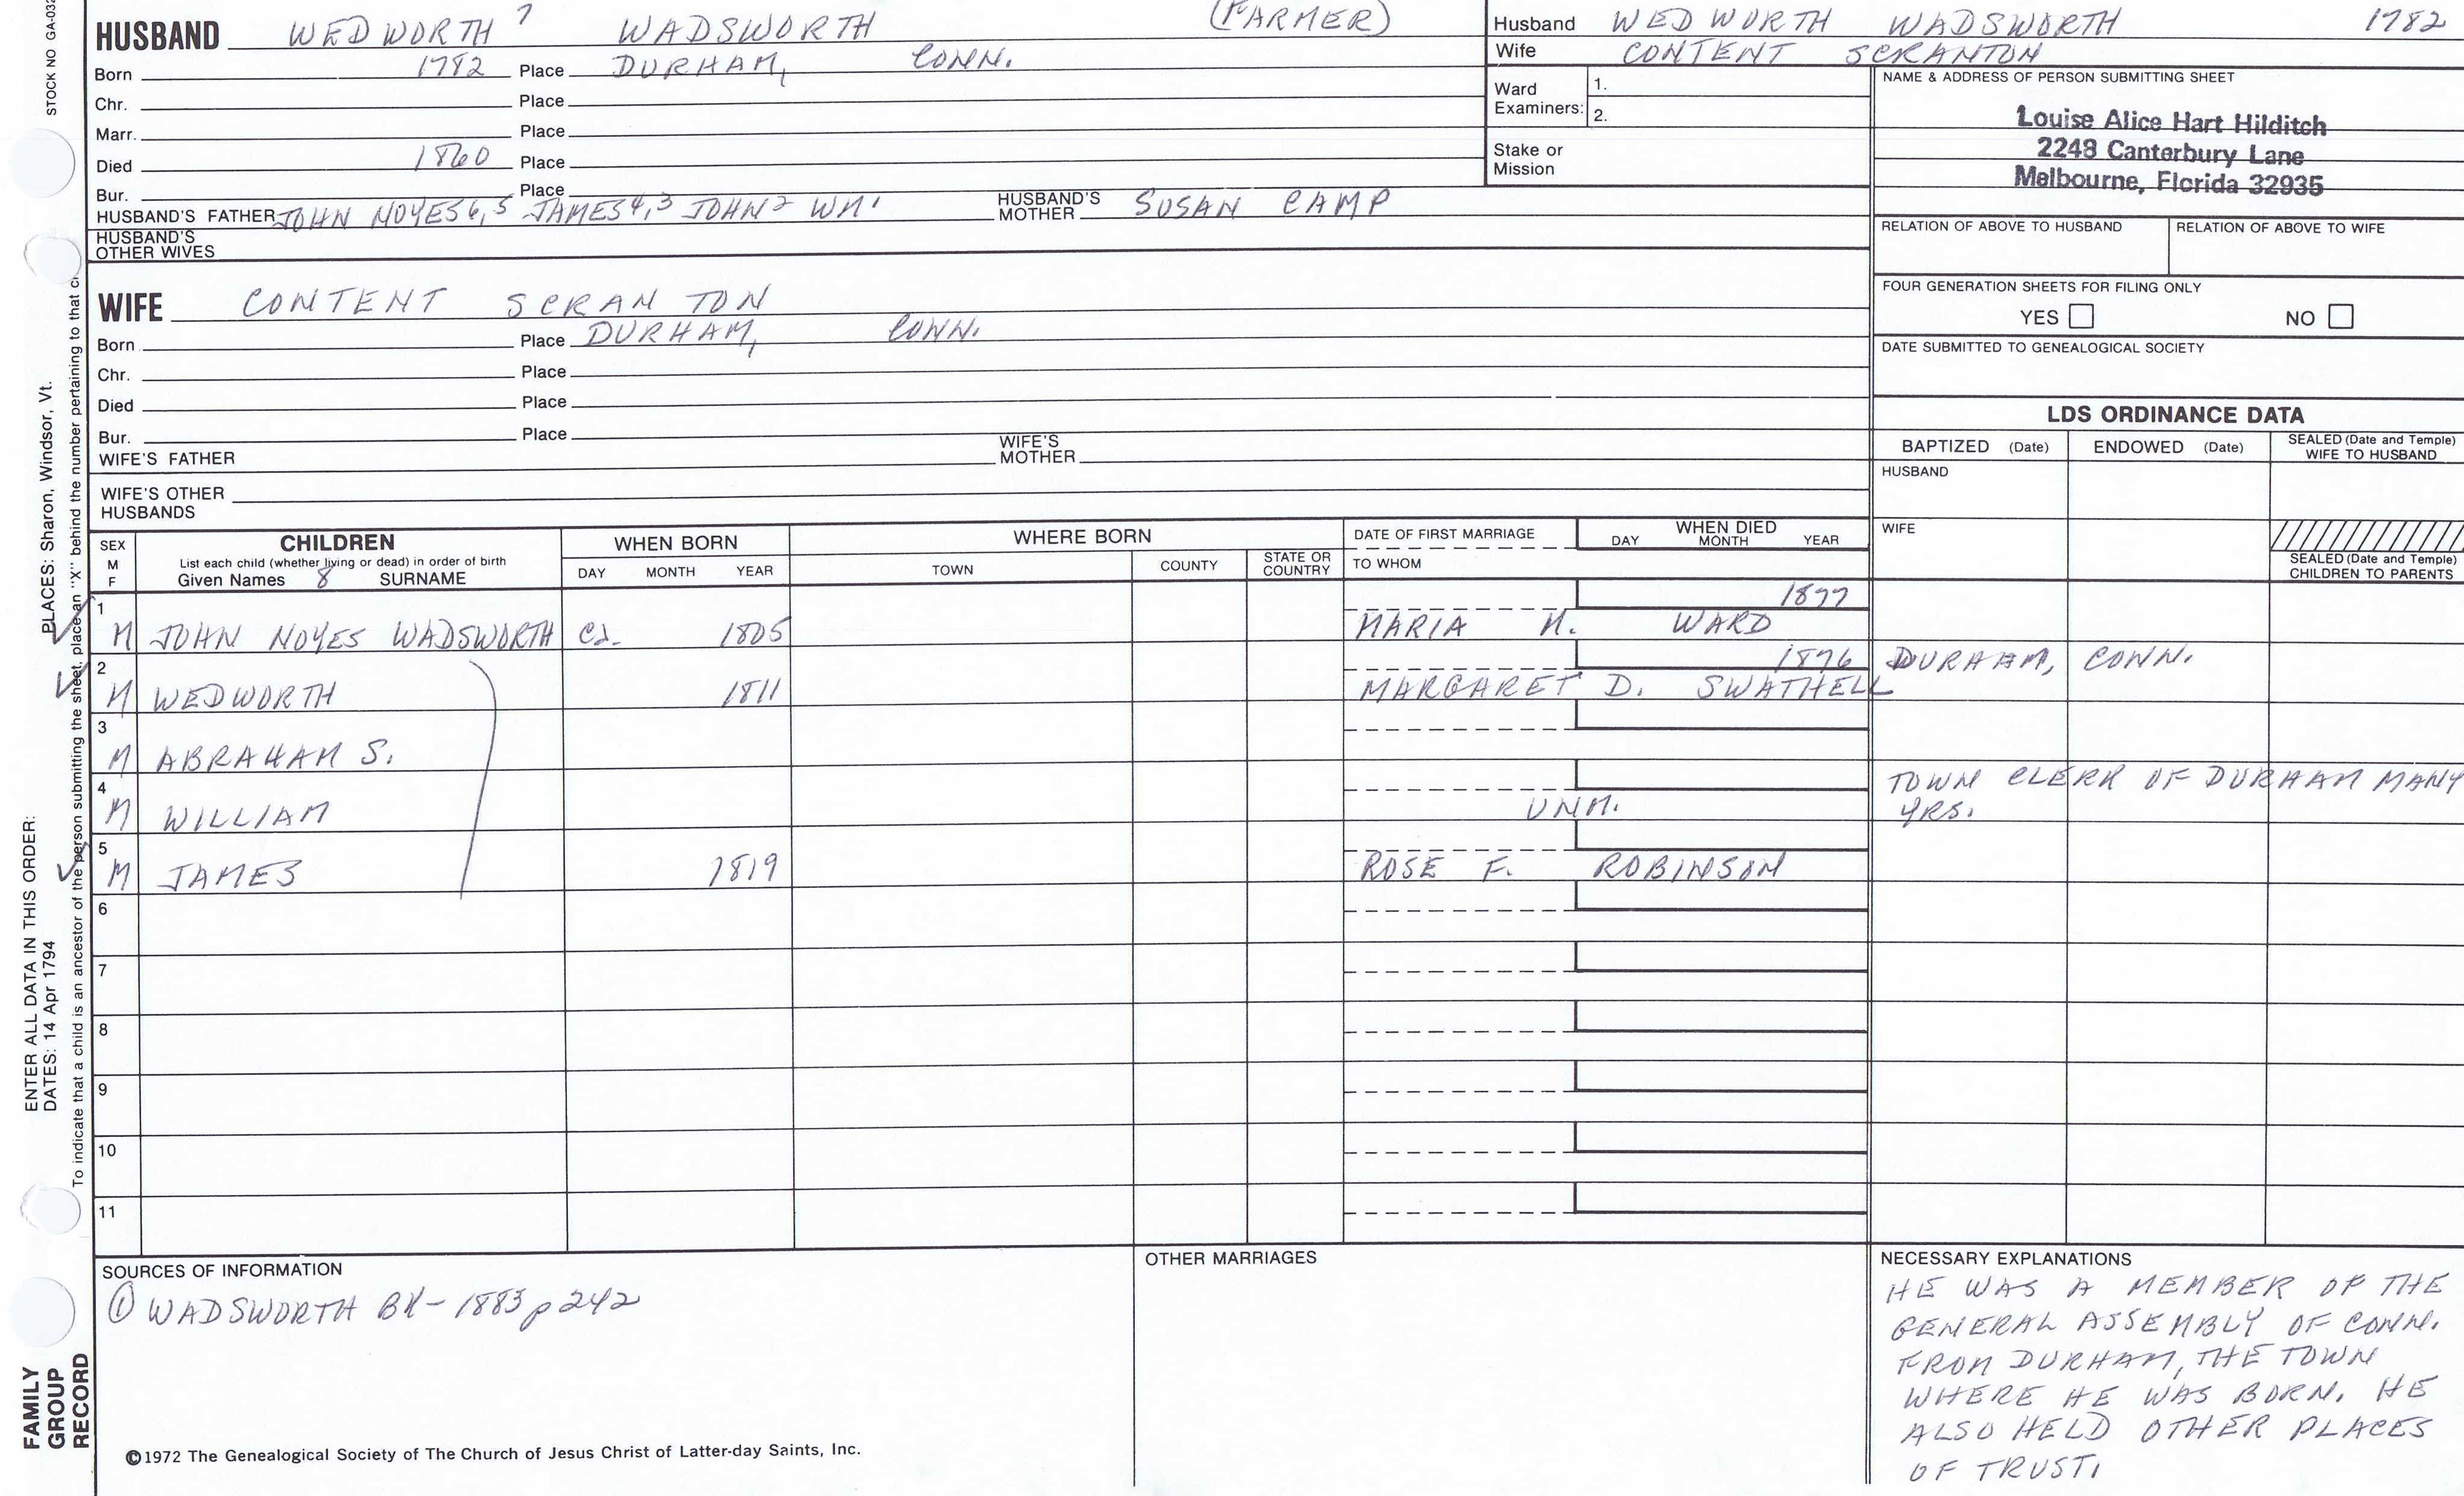 STOCK NO GA-032
HUSBAND WEDWORTH 7 WADSWORTH (FARMER)
Born 1782 Place DURHAM, CONN.
Chr. Place
Marr. Place
Died 1860 Place
Bur. Place
HUSBAND'S FATHER JOHN NOYES 6,5 JAMES 4,3 JOHN 2 WM 1 HUSBAND'S MOTHER SUSAN CAMP
HUSBAND'S OTHER WIVES
WIFE CONTENT SCRANTON
Born Place DURHAM, CONN.
Chr. Place
Died Place
Bur. Place
WIFE'S FATHER WIFE'S MOTHER
WIFE'S OTHER HUSBANDS
Husband WEDWORTH WADSWORTH 1782
Wife CONTENT SCRANTON
Ward Examiners: 1. 2.
Stake or Mission
NAME & ADDRESS OF PERSON SUBMITTING SHEET
Louise Alice Hart Hilditch
2248 Canterbury Lane
Melbourne, Florida 32935
RELATION OF ABOVE TO HUSBAND RELATION OF ABOVE TO WIFE
FOUR GENERATION SHEETS FOR FILING ONLY
YES NO
DATE SUBMITTED TO GENEALOGICAL SOCIETY
LDS ORDINANCE DATA
BAPTIZED (Date) ENDOWED (Date) SEALED (Date and Temple) WIFE TO HUSBAND
HUSBAND
WIFE
SEALED (Date and Temple) CHILDREN TO PARENTS
SEX M F
CHILDREN
List each child (whether living or dead) in order of birth
Given Names 8 SURNAME
WHEN BORN
DAY MONTH YEAR
WHERE BORN
TOWN COUNTY STATE OR COUNTRY
DATE OF FIRST MARRIAGE
TO WHOM
WHEN DIED
DAY MONTH YEAR
1 1877
M JOHN NOYES WADSWORTH 1805 MARIA N. WARD
2 1876 DURHAM, CONN.
M WEDWORTH 1811 MARGARET D. SWATHELL
3
M ABRAHAM S.
4 TOWN CLERK OF DURHAM MANY
M WILLIAM UNM. YRS.
5
M JAMES 1819 ROSE F. ROBINSON
6
7
8
9
10
11
SOURCES OF INFORMATION
① WADSWORTH BK-1883 p242
OTHER MARRIAGES
NECESSARY EXPLANATIONS
HE WAS A MEMBER OF THE
GENERAL ASSEMBLY OF CONN.
FROM DURHAM, THE TOWN
WHERE HE WAS BORN. HE
ALSO HELD OTHER PLACES
OF TRUST.
©1972 The Genealogical Society of The Church of Jesus Christ of Latter-day Saints, Inc.
FAMILY
GROUP
RECORD
ENTER ALL DATA IN THIS ORDER:
DATES: 14 Apr 1794 PLACES: Sharon, Windsor, Vt.
To indicate that a child is an ancestor of the person submitting the sheet, place an "X" behind the number pertaining to that